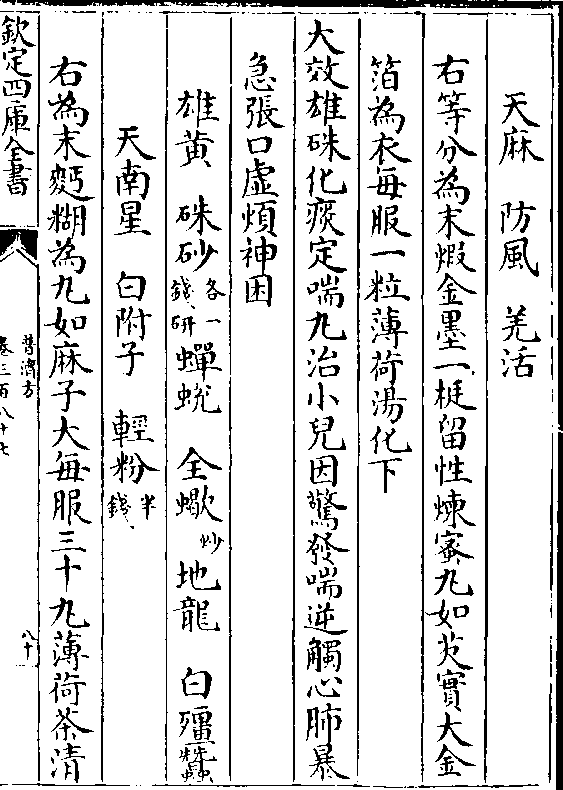 天麻　防風　羌活
右等分為末煆金墨一梃留性煉蜜丸如芡實大金
箔為衣每服一粒薄荷湯化下
大效雄硃化痰定喘丸治小兒因驚發喘逆觸心肺暴
急張口虛煩神困
雄黄　硃砂各一錢研　蟬蛻　全蠍炒　地龍　白殭蠶
天南星　白附子　輕粉半錢
右為末麪糊為丸如麻子大每服三十丸薄荷茶清
欽定四庫全書
普濟方
卷三百八十七
八十